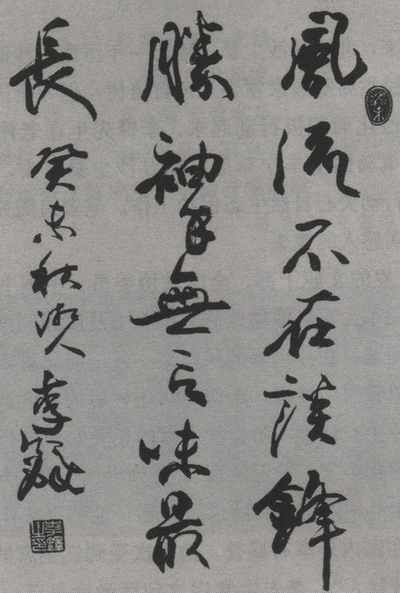 風流不在談鋒
勝袖手無言味最
長 癸未秋湘人李鐸
李鐸之印